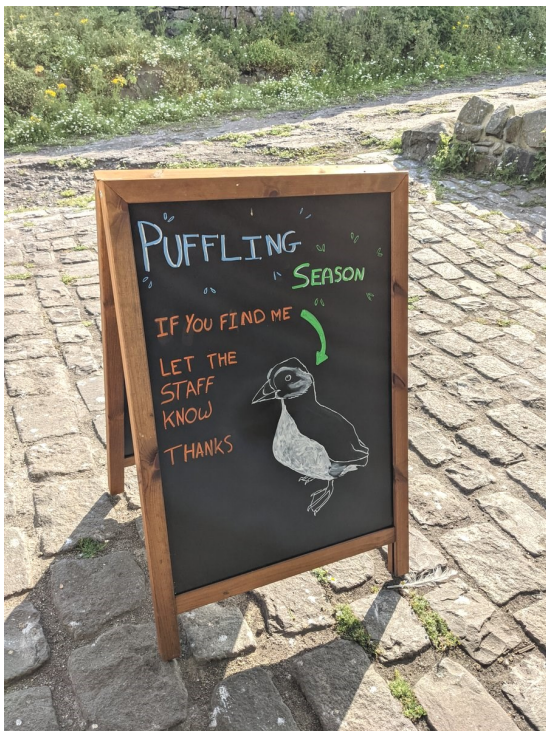 PUFFLING
SEASON
IF YOU FIND ME
LET THE
STAFF
KNOW
THANKS